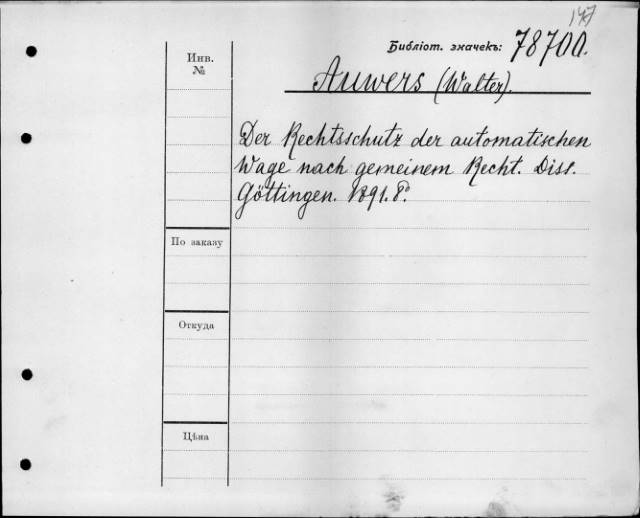 147
Библіот. значекъ: 78700.
Инв. №
Auwers (Walter).
Der Rechtsschutz der automatischen
Wage nach gemeinem Recht. Diss.
Göttingen. 1891. 8°.
По заказу
Откуда
Цѣна